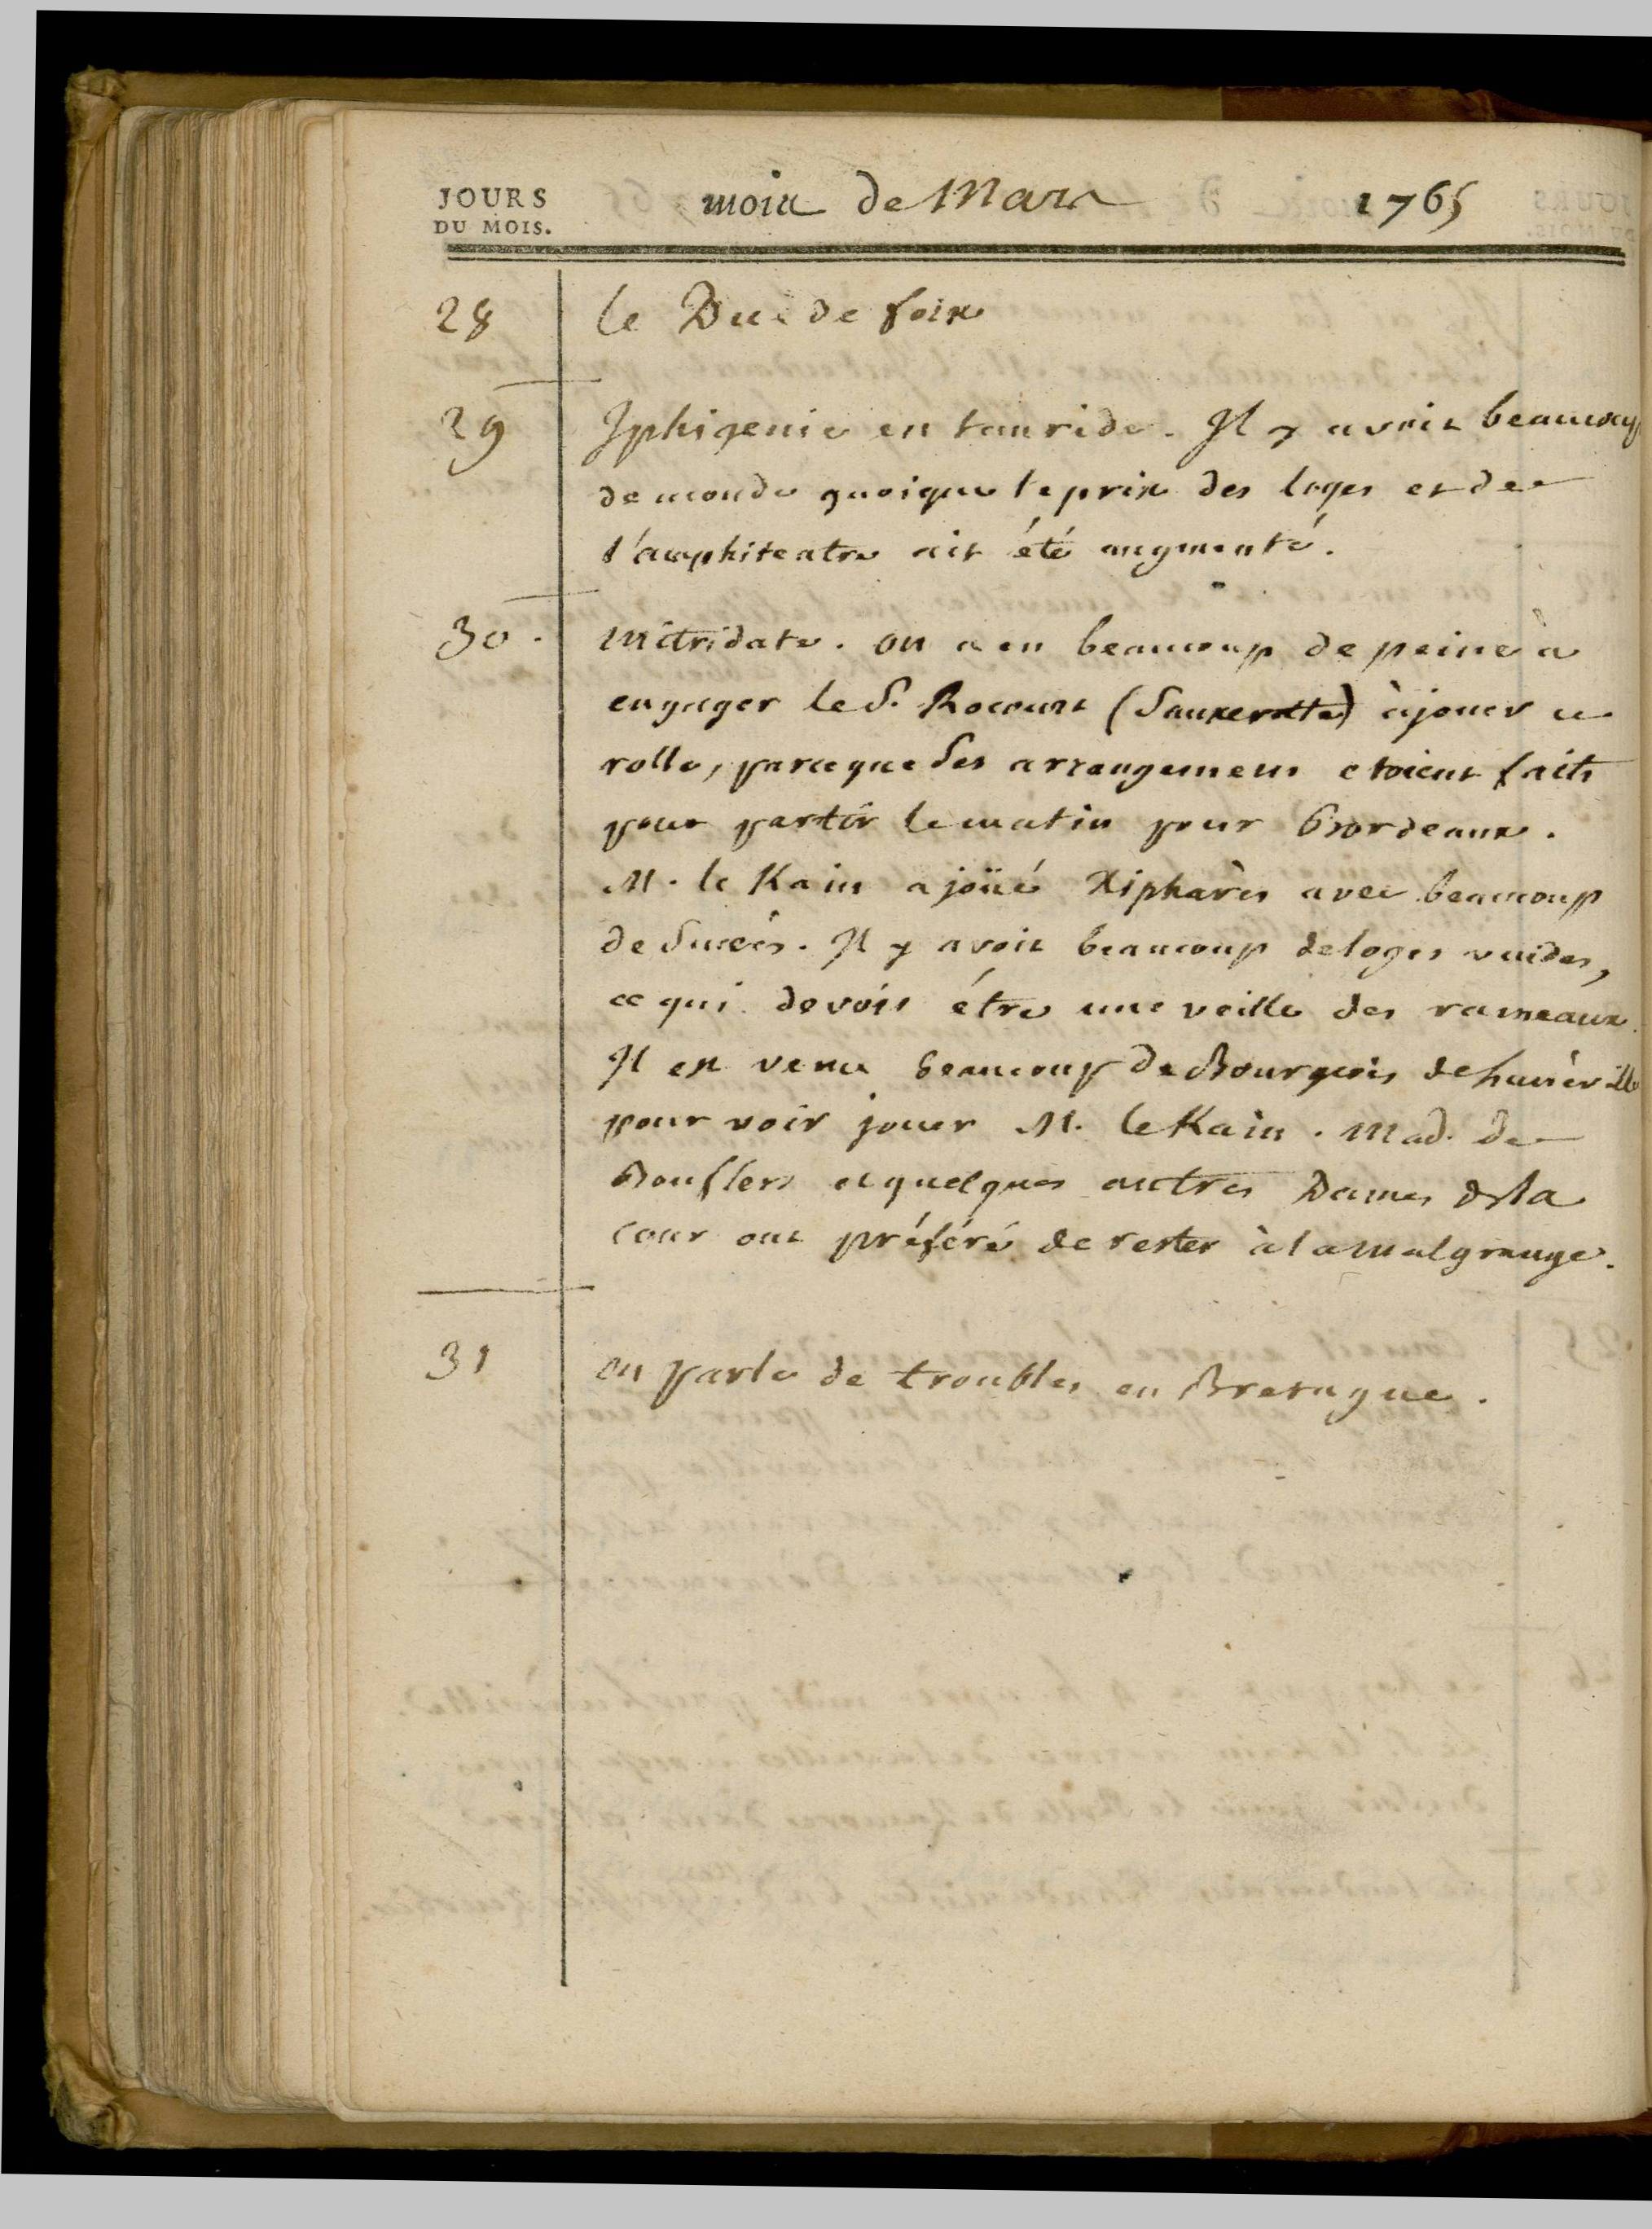 JOURS
DU MOIS.
mois de Mars 1765
28 le Duc de foix
29 Iphigenie en tauride. Il y avoit beaucoup
de monde quoique le prix des loges et de
l'amphiteatre ait été augmenté.
30. Mitridate. on a eu beaucoup de peine a
engager le S. Rocourt (Sauxerotte) à jouer ce
rolle, parceque ses arrangemens etoient faits
pour partir le matin pour Bordeaux.
M. le Kain a joüé Xipharès avec beaucoup
de Succès. Il y avoit beaucoup de loges vuides,
ce qui devoit étre une veille des rameaux.
Il est venu beaucoup de Bourgeois de lunéville
pour voir jouer M. le Kain. Mad. de
Bouflers et quelques autres Dames de la
cour ont préféré de rester à la Malgrange.
31 on parle de troubles en Bretagne.